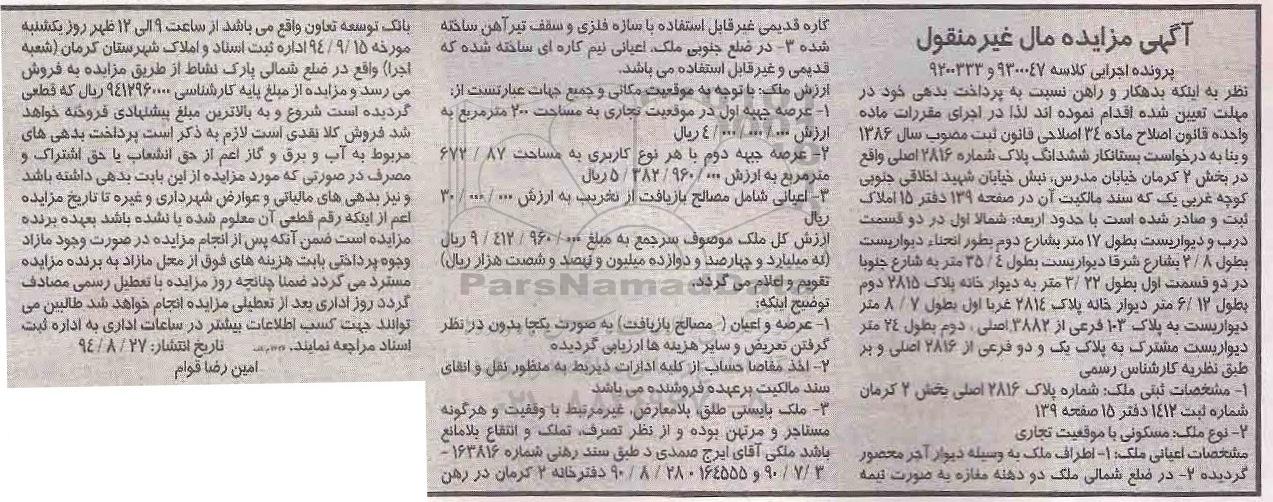 آگهی مزایده مال غیر منقول
پرونده اجرایی کلاسه ۹۳۰۰۰۴۷ و ۹۲۰۰۳۳۳
نظر به اینکه بدهکار و راهن نسبت به پرداخت بدهی خود در
مهلت تعیین شده اقدام نموده اند لذا در اجرای مقررات ماده
واحده قانون اصلاح ماده ۳۴ اصلاحی قانون ثبت مصوب سال ۱۳۸۶
و بنا به درخواست بستانکار ششدانگ پلاک شماره ۲۸۱۶ اصلی واقع
در بخش ۲ کرمان خیابان مدرس، نبش خیابان شهید اخلاقی جنوبی
کوچه غربی یک که سند مالکیت آن در صفحه ۱۳۹ دفتر ۱۵ املاک
ثبت و صادر شده است با حدود اربعه: شمالا اول در دو قسمت
درب و دیواریست بطول ۱۷ متر بشارع دوم بطور انحناء دیواریست
بطول ۲/۸ بشارع شرقا دیواریست بطول ۳۵/۴ متر به شارع جنوبا
در دو قسمت اول بطول ۳/۲۲ متر به دیوار خانه پلاک ۲۸۱۵ دوم
بطول ۶/۱۲ متر دیوار خانه پلاک ۲۸۱۴ غربا اول بطول ۸/۷ متر
دیواریست به پلاک ۱۰۳ فرعی از ۳۸۸۲ اصلی ، دوم بطول ۲۴ متر
دیواریست مشترک به پلاک یک و دو فرعی از ۲۸۱۶ اصلی و بر
طبق نظریه کارشناس رسمی
۱- مشخصات ثبتی ملک: شماره پلاک ۲۸۱۶ اصلی بخش ۲ کرمان
شماره ثبت ۱۴۱۲ دفتر ۱۵ صفحه ۱۳۹
۲- نوع ملک: مسکونی با موقعیت تجاری
مشخصات اعیانی ملک: ۱- اطراف ملک به وسیله دیوار آجر محصور
گردیده ۲- در ضلع شمالی ملک دو دهنه مغازه به صورت نیمه
کاره قدیمی غیرقابل استفاده با سازه فلزی و سقف تیرآهن ساخته
شده ۳- در ضلع جنوبی ملک، اعیانی نیم کاره ای ساخته شده که
قدیمی و غیرقابل استفاده می باشد.
ارزش ملک: با توجه به موقعیت مکانی و جمیع جهات عبارتست از:
۱- عرصه جبهه اول در موقعیت تجاری به مساحت ۲۰۰ مترمربع به
ارزش ۴/۰۰۰/۰۰۰/۰۰۰ ریال
۲- عرصه جبهه دوم با هر نوع کاربری به مساحت ۶۷۲/۸۷
مترمربع به ارزش ۵/۳۸۲/۹۶۰/۰۰۰ ریال
۳- اعیانی شامل مصالح بازیافت از تخریب به ارزش ۳۰/۰۰۰/۰۰۰
ریال
ارزش کل ملک موصوف سرجمع به مبلغ ۹/۴۱۲/۹۶۰/۰۰۰ ریال
(نه میلیارد و چهارصد و دوازده میلیون و نهصد و شصت هزار ریال)
تقویم و اعلام می گردد.
توضیح اینکه:
۱- عرصه و اعیان ( مصالح بازیافت) به صورت یکجا بدون در نظر
گرفتن تعریض و سایر هزینه ها ارزیابی گردیده
۲- اخذ مفاصا حساب از کلیه ادارات ذیربط به منظور نقل و انقای
سند مالکیت برعهده فروشنده می باشد
۳- ملک بایستی طلق، بلامعارض، غیرمرتبط با وقفیت و هرگونه
مستاجر و مرتهن بوده و از نظر تصرف، تملک و انتفاع بلامانع
باشد ملکی آقای ایرج صمدی د طبق سند رهنی شماره ۱۶۳۸۱۶ -
۹۰/۷/۳ و ۱۶۴۵۵۵ ۰ ۹۰/۸/۲۸ دفترخانه ۲ کرمان در رهن
بانک توسعه تعاون واقع می باشد از ساعت ۹ الی ۱۲ ظهر روز یکشنبه
مورخه ۹۴/۹/۱۵ اداره ثبت اسناد و املاک شهرستان کرمان (شعبه
اجرا) واقع در ضلع شمالی پارک نشاط از طریق مزایده به فروش
می رسد و مزایده از مبلغ پایه کارشناسی ۹۴۱۲۹۶۰۰۰۰ ریال که قطعی
گردیده است شروع و به بالاترین مبلغ پیشنهادی فروخته خواهد
شد فروش کلا نقدی است لازم به ذکر است پرداخت بدهی های
مربوط به آب و برق و گاز اعم از حق انشعاب یا حق اشتراک و
مصرف در صورتی که مورد مزایده از این بابت بدهی داشته باشد
و نیز بدهی های مالیاتی و عوارض شهرداری و غیره تا تاریخ مزایده
اعم از اینکه رقم قطعی آن معلوم شده یا نشده باشد بعهده برنده
مزایده است ضمن آنکه پس از انجام مزایده در صورت وجود مازاد
وجوه پرداختی بابت هزینه های فوق از محل مازاد به برنده مزایده
مسترد می گردد ضمنا چنانچه روز مزایده با تعطیل رسمی مصادف
گردد روز اداری بعد از تعطیلی مزایده انجام خواهد شد طالبین می
توانند جهت کسب اطلاعات بیشتر در ساعات اداری به اداره ثبت
اسناد مراجعه نمایند. تاریخ انتشار: ۹۴/۸/۲۷
امین رضا قوام
ParsNamadData